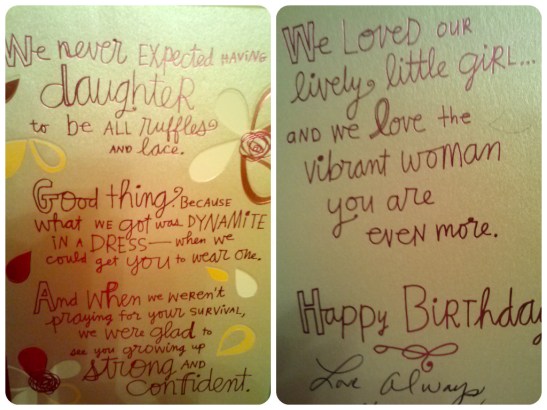 We never EXPECTED HAVING
daughter
to be ALL Ruffles
AND lace.
Good thing, BECAUSE
what we got was DYNAMITE
IN A DRESS—when we
could get you to wear one.
And when we weren't
praying for your SURVIVAL,
we were glad to
see you growing up
strong AND
confident.
We Loved OUR
lively little GIRL...
AND we love the
vibrant woman
you are
EVEN MORE.
Happy BIRTHda
Love Always,